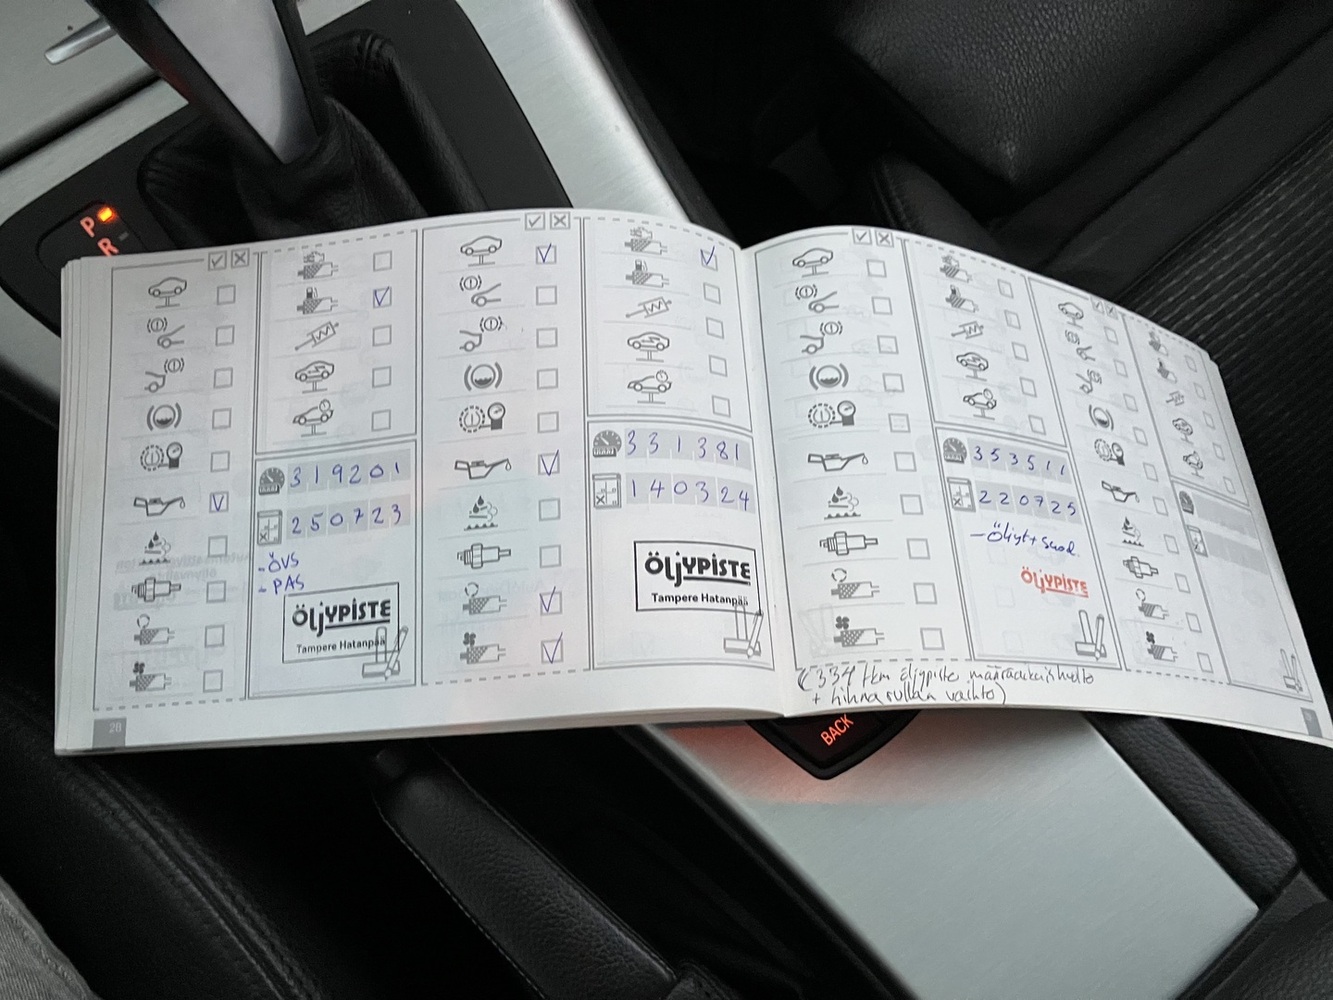 P
R
319201
250723
- ÖVS
- PAS
ÖljYPISTE
Tampere Hatanpää
28
331381
140324
ÖljYPISTE
Tampere Hatanpää
353511
220725
- Öljyt + suod.
ÖljYPISTE
öljypiste määräaikaishuolto
+ hihnarullan vaihto)
BACK